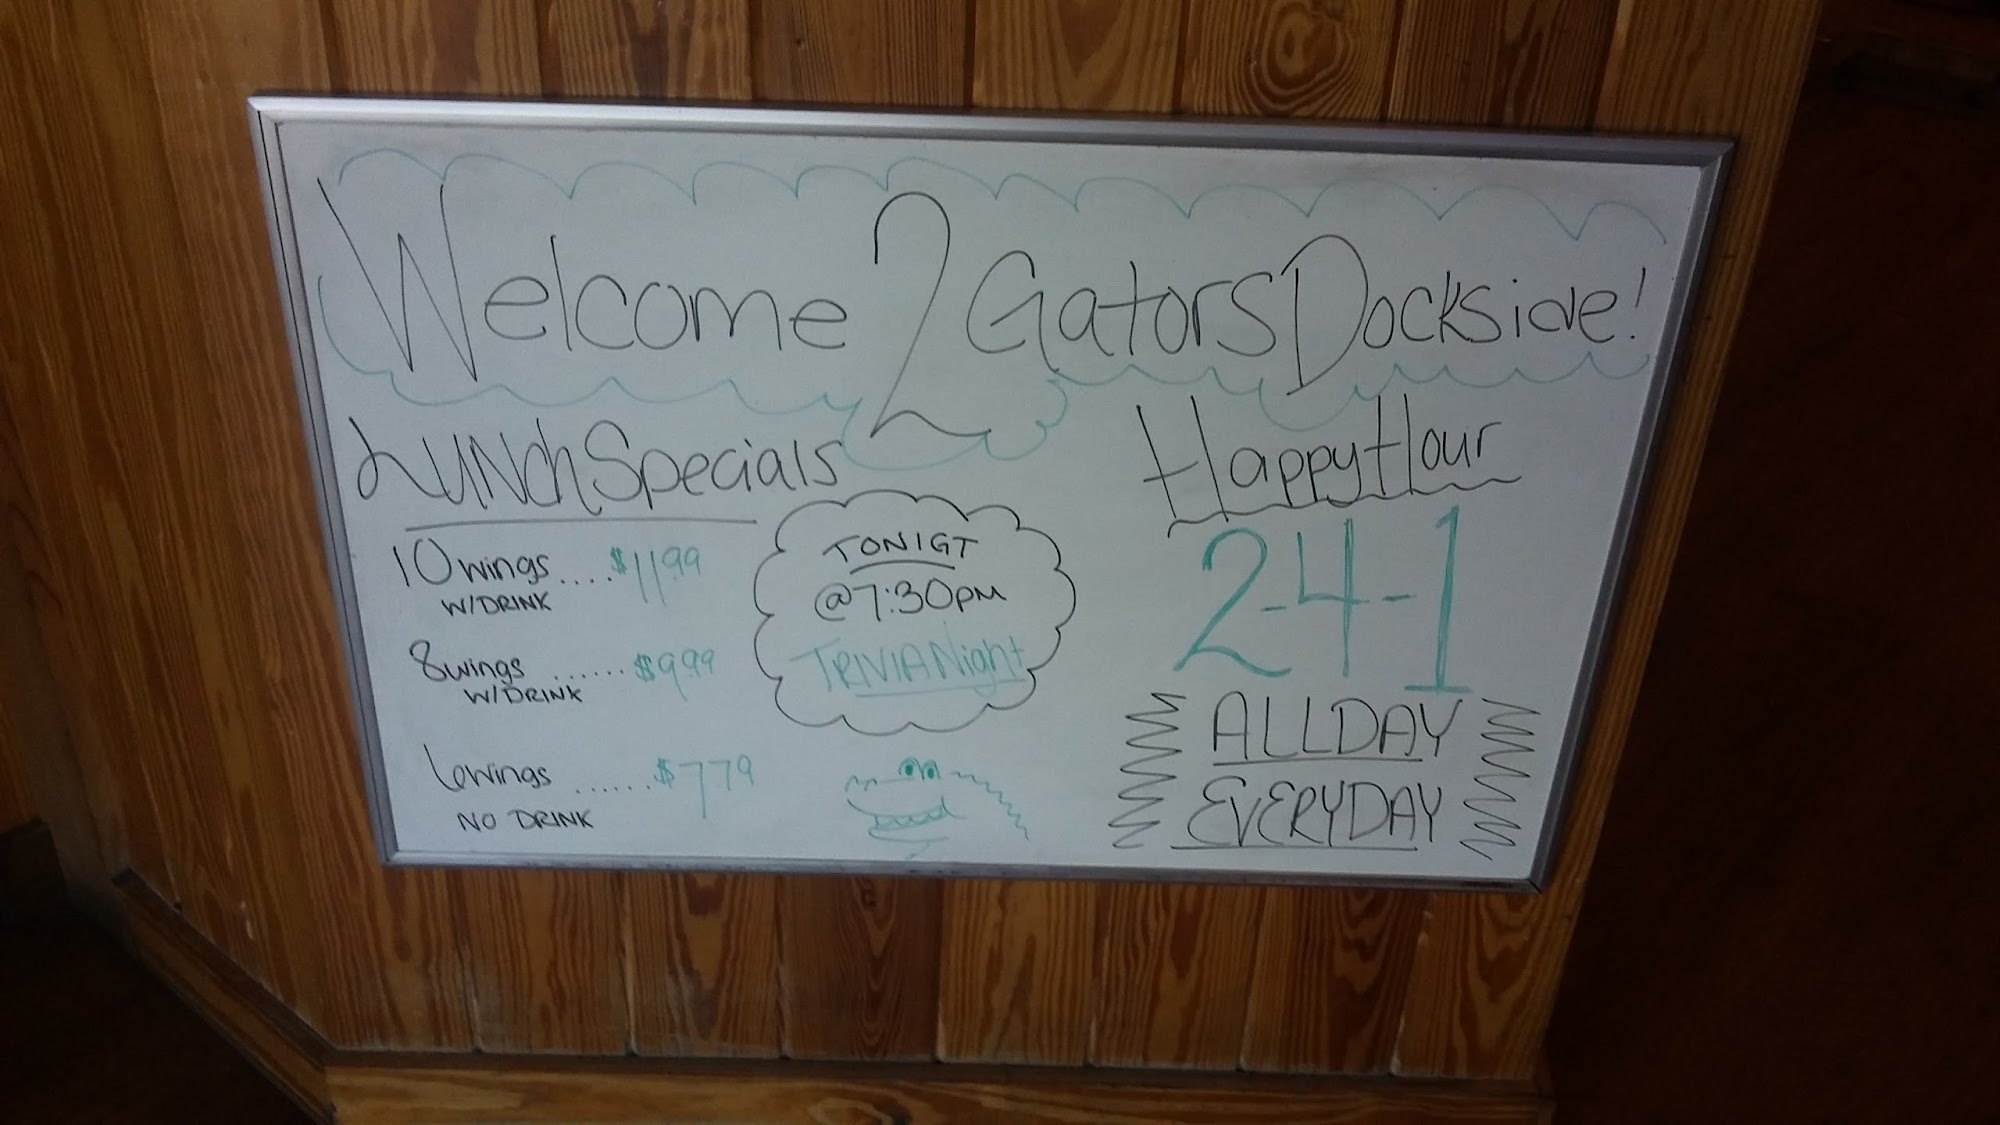 Welcome 2 Gators Dockside!
Lunch Specials
10 wings .... $11.99
W/DRINK
8 wings ...... $9.99
W/DRINK
6 wings ...... $7.79
NO DRINK
TONIGT
@7:30PM
TRIVIA Night
Happy Hour
2-4-1
ALL DAY
EVERYDAY